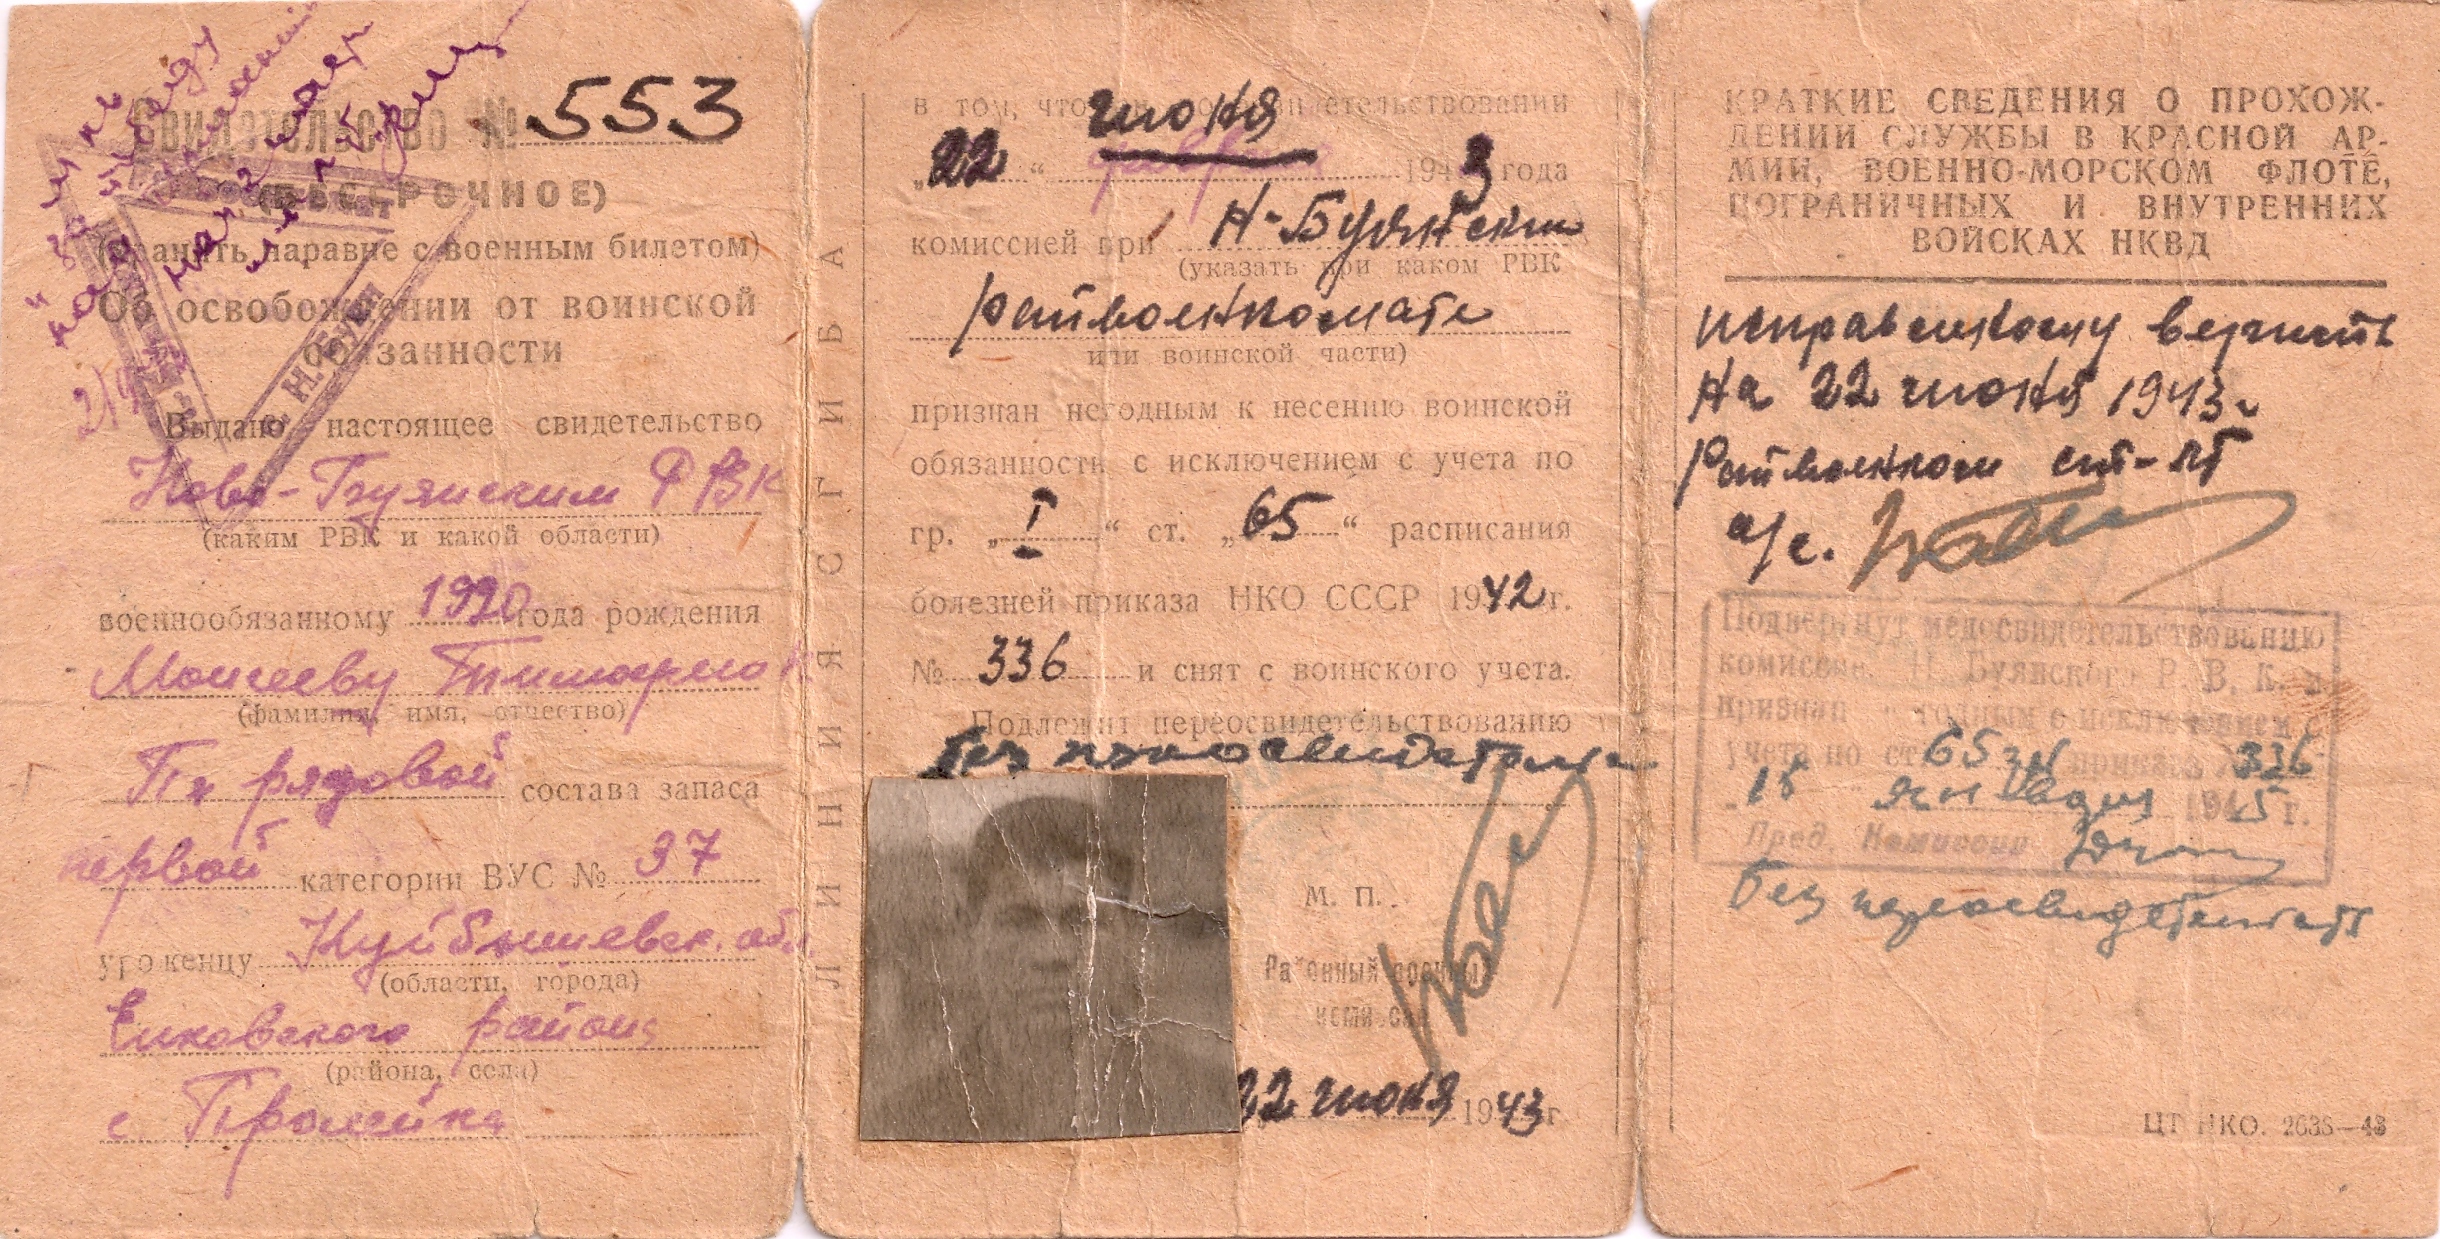 Свидетельство № 553
(БЕССРОЧНОЕ)
(хранить наравне с военным билетом)
Об освобождении от воинской
обязанности
Н. Буян
Выдано настоящее свидетельство
Ново-Буянским РВК
(каким РВК и какой области)
военнообязанному 1920 года рождения
Моисееву Тимофею
(фамилия, имя, отчество)
рядовой состава запаса
первой категории ВУС № 37
уроженцу Куйбышевск. обл.
(области, города)
района
(района, села)
с
ЛИНИЯ СГИБА
в том, что он по освидетельствовании
июня
„22“ 1943 года
комиссией при Н-Буянском
(указать при каком РВК
райвоенкомате
или воинской части)
признан негодным к несению воинской
обязанности с исключением с учета по
гр. „I“ ст. „65“ расписания
болезней приказа НКО СССР 1942 г.
№ 336 и снят с воинского учета.
Подлежит переосвидетельствованию
без
М. П.
Районный военный
комиссар
22 июня 1943 г
КРАТКИЕ СВЕДЕНИЯ О ПРОХОЖ-
ДЕНИИ СЛУЖБЫ В КРАСНОЙ АР-
МИИ, ВОЕННО-МОРСКОМ ФЛОТЕ,
ПОГРАНИЧНЫХ И ВНУТРЕННИХ
ВОЙСКАХ НКВД
исправленному верить
на 22 июня 1943 г
Райвоенком ст-лт
а/с.
Подвергнут медосвидетельствованию
комиссией Н. Буянского Р. В. К. и
признан годным с исключением с
учета по ст 65 приказа 336
15 января 1945 г.
Пред. Комиссии
Без переосвидетельствования
ЦТ НКО. 2638—43